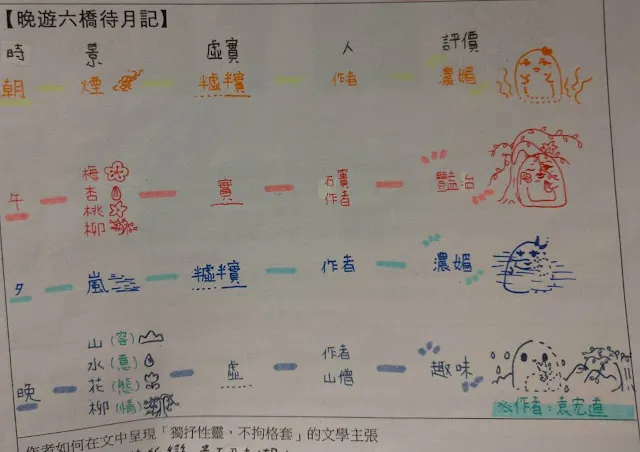 【晚遊六橋待月記】
時 景 虛實 人 評價
朝 煙 半虛半實 作者 濃媚
午 梅 杏 桃 柳 實 石簣 作者 豔冶
夕 嵐 半虛半實 作者 濃媚
晚 山(容) 水(意) 花(態) 柳(情) 虛 作者 山僧 趣味
※作者:袁宏道
作者如何在文中呈現「獨抒性靈,不拘格套」的文學主張